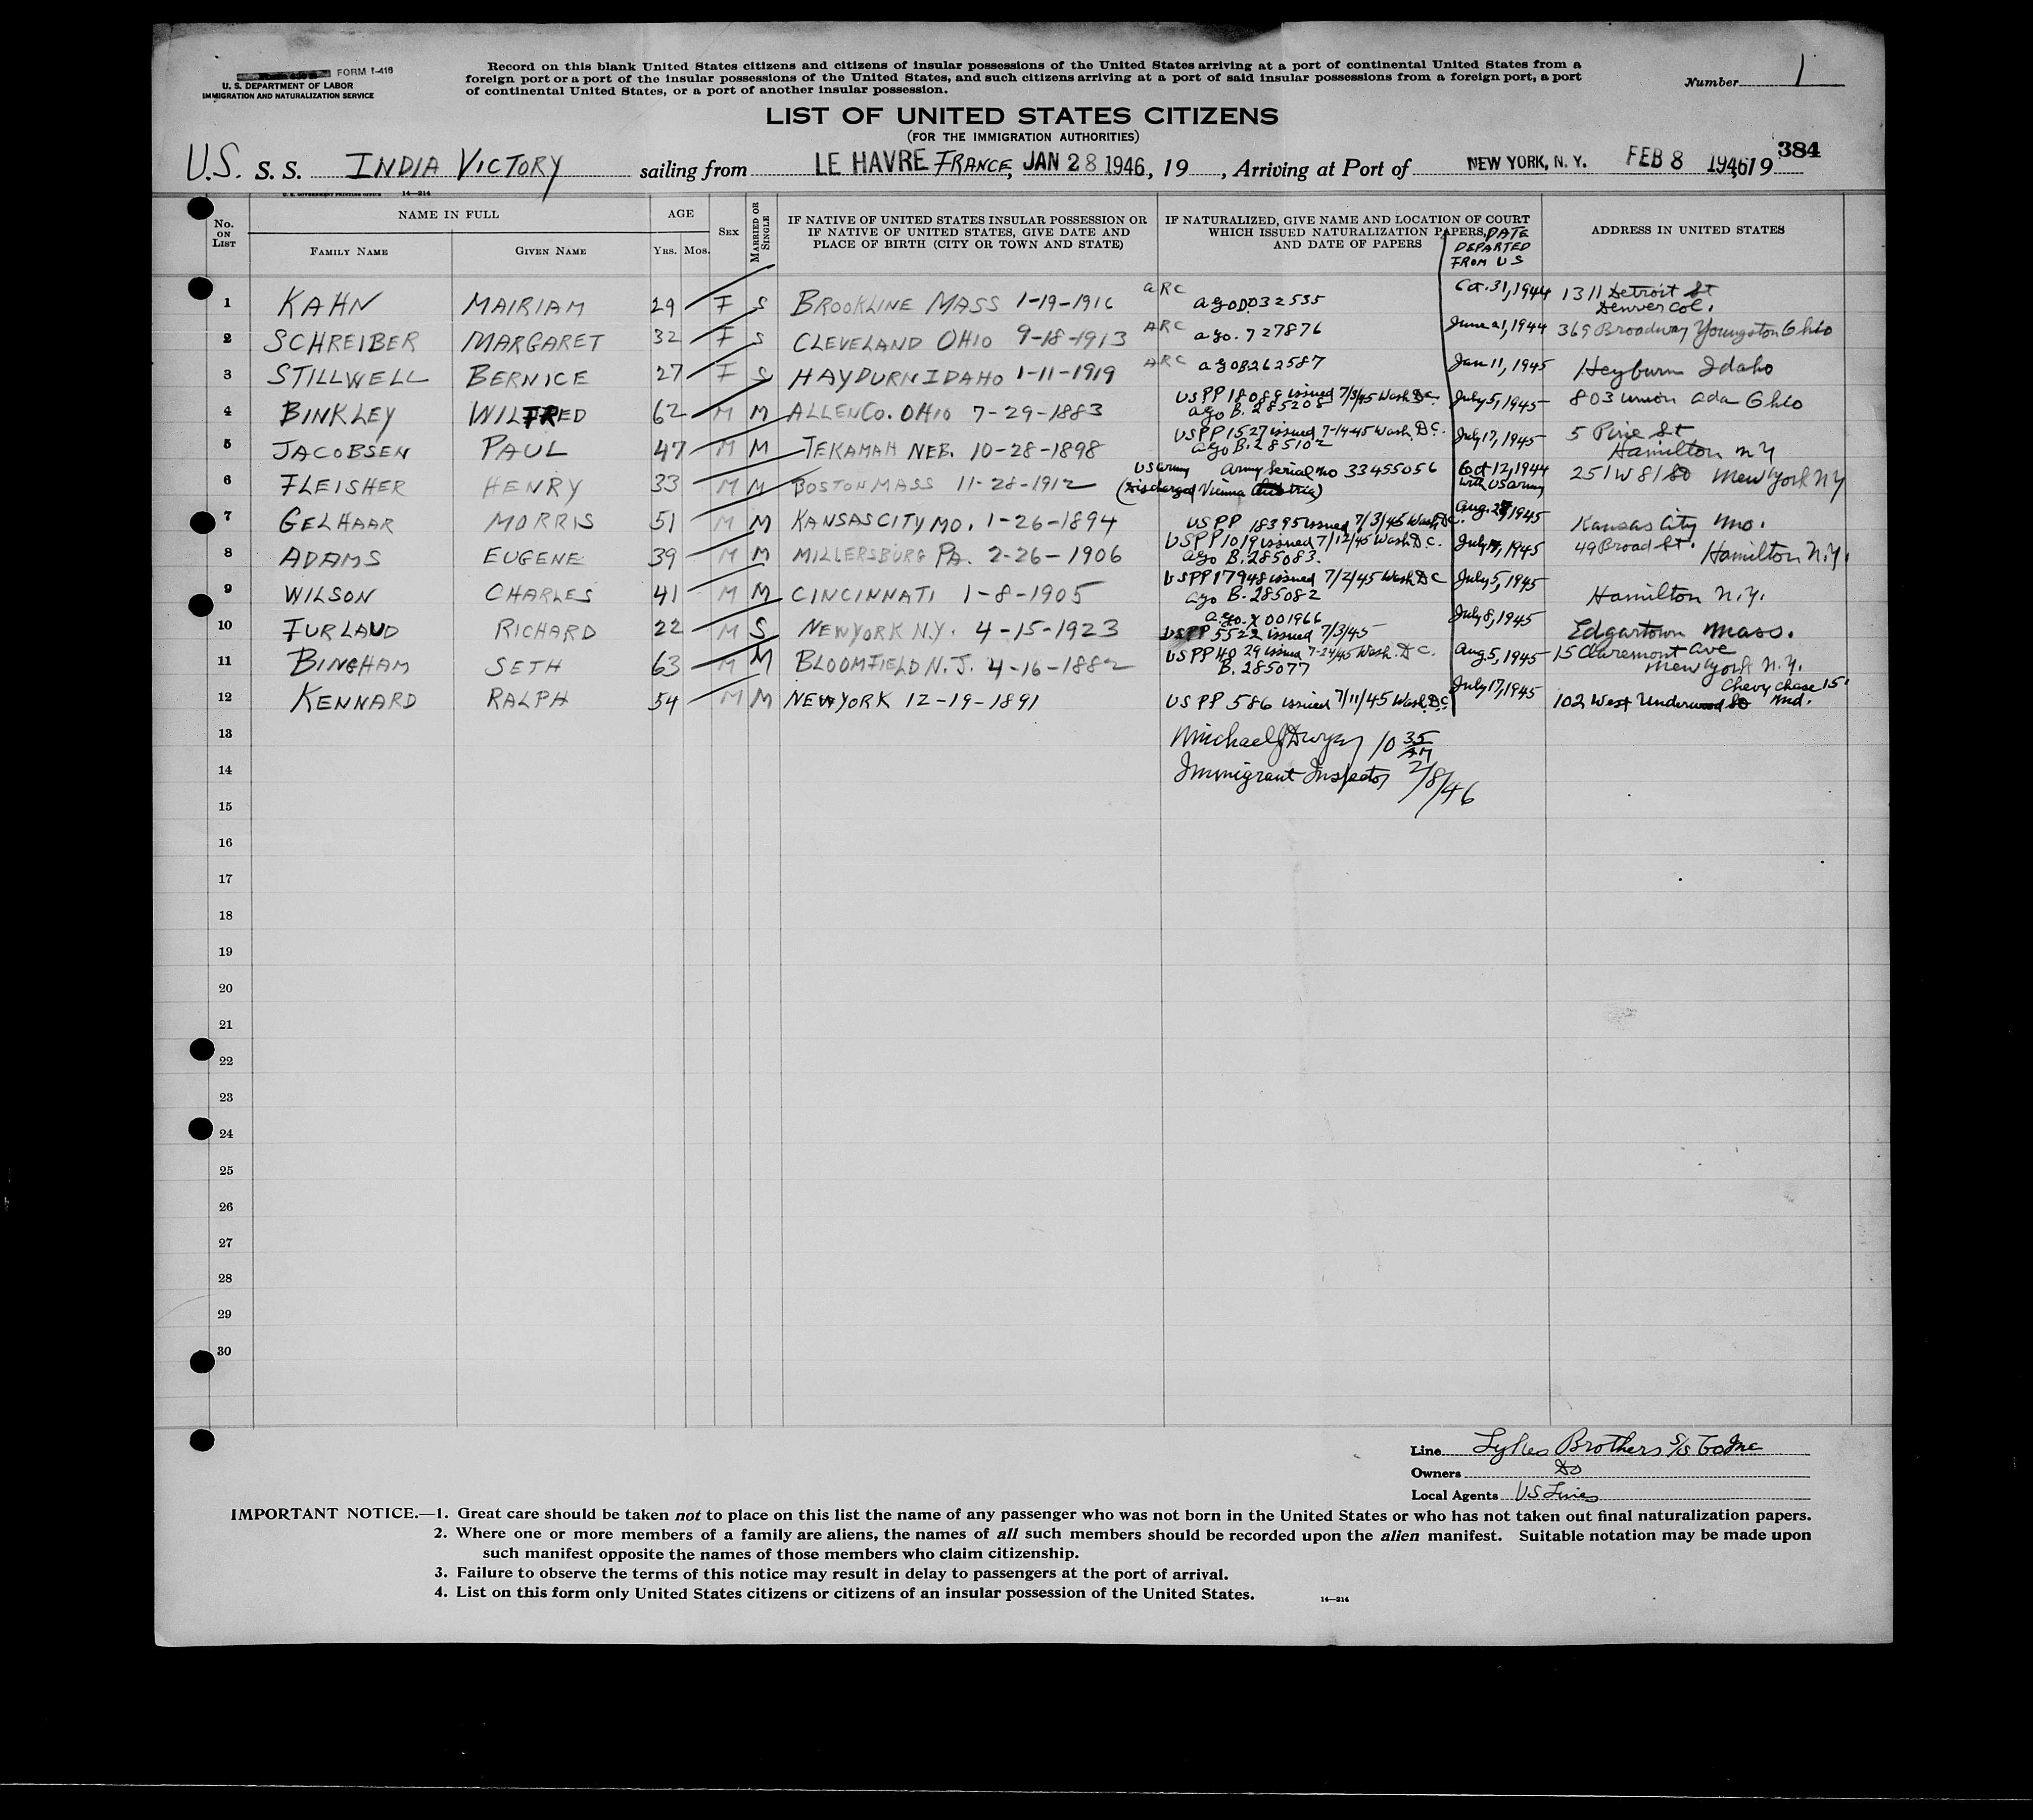 FORM I-416
U. S. DEPARTMENT OF LABOR
IMMIGRATION AND NATURALIZATION SERVICE
Record on this blank United States citizens and citizens of insular possessions of the United States arriving at a port of continental United States from a
foreign port or a port of the insular possessions of the United States, and such citizens arriving at a port of said insular possessions from a foreign port, a port
of continental United States, or a port of another insular possession.
Number 1
LIST OF UNITED STATES CITIZENS
(FOR THE IMMIGRATION AUTHORITIES)
384
U.S. S. S. INDIA VICTORY sailing from LE HAVRE FRANCE, JAN 28 1946, 19 , Arriving at Port of NEW YORK, N. Y. FEB 8 1946, 19
U. S. GOVERNMENT PRINTING OFFICE 14—214
No. ON LIST
NAME IN FULL
FAMILY NAME
GIVEN NAME
AGE
YRS. MOS.
SEX
MARRIED OR SINGLE
IF NATIVE OF UNITED STATES INSULAR POSSESSION OR
IF NATIVE OF UNITED STATES, GIVE DATE AND
PLACE OF BIRTH (CITY OR TOWN AND STATE)
IF NATURALIZED, GIVE NAME AND LOCATION OF COURT
WHICH ISSUED NATURALIZATION PAPERS,
AND DATE OF PAPERS
DATE
DEPARTED
FROM US
ADDRESS IN UNITED STATES
1 KAHN MAIRIAM 29 F S BROOKLINE MASS 1-19-1916 ARC ago D032535 Oct. 31, 1944 1311 Detroit St
Denver Col.
2 SCHREIBER MARGARET 32 F S CLEVELAND OHIO 9-18-1913 ARC ago. 727876 June 21, 1944 369 Broadway Youngston Ohio
3 STILLWELL BERNICE 27 F S HAYDURN IDAHO 1-11-1919 ARC ago B262587 Jan 11, 1945 Heyburn Idaho
4 BINKLEY WILFRED 62 M M ALLEN CO. OHIO 7-29-1883 USPP 18089 issued 7/3/45 Wash. DC. July 5, 1945 803 Union Ada Ohio
ago B. 285208
5 JACOBSEN PAUL 47 M M TEKAMAH NEB. 10-28-1898 USPP 1527 issued 7-14-45 Wash. D.C. July 17, 1945 5 Pine St
ago B. 285102 Hamilton NY
6 FLEISHER HENRY 33 M M BOSTON MASS 11-28-1912 US Army Army Serial no 33455056 Oct 12, 1944 251 W 81 St New York NY
(Discharged Vienna Austria) with US Army
7 GELHAAR MORRIS 51 M M KANSAS CITY MO. 1-26-1894 USPP 18395 issued 7/3/45 Wash. D.C. Aug. 28, 1945 Kansas City Mo.
8 ADAMS EUGENE 39 M M MILLERSBURG PA. 2-26-1906 USPP 1019 issued 7/12/45 Wash. D.C. July 1945 49 Broad St. Hamilton N.Y.
ago B. 285083.
9 WILSON CHARLES 41 M M CINCINNATI 1-8-1905 USPP 17948 issued 7/2/45 Wash DC July 5, 1945 Hamilton N.Y.
ago B. 285082
10 FURLAUD RICHARD 22 M S NEW YORK N.Y. 4-15-1923 ago. X 001966 July 8, 1945 Edgartown Mass.
USPP 5522 issued 7/3/45
11 BINGHAM SETH 63 M M BLOOMFIELD N.J. 4-16-1882 USPP 4029 issued 7-24/45 Wash. D.C. Aug. 5, 1945 15 Claremont Ave
B. 285077 New York N.Y.
12 KENNARD RALPH 54 M M NEW YORK 12-19-1891 USPP 586 issued 7/11/45 Wash. D.C. July 17, 1945 Chevy Chase 15
102 West Underwood St Md.
13 Michael J Dwyer 10 35 AM
14 Immigrant Inspector 2/8/46
15
16
17
18
19
20
21
22
23
24
25
26
27
28
29
30
Line Lykes Brothers S/S Co Inc
Owners Do
Local Agents US Lines
IMPORTANT NOTICE.—1. Great care should be taken not to place on this list the name of any passenger who was not born in the United States or who has not taken out final naturalization papers.
2. Where one or more members of a family are aliens, the names of all such members should be recorded upon the alien manifest. Suitable notation may be made upon
such manifest opposite the names of those members who claim citizenship.
3. Failure to observe the terms of this notice may result in delay to passengers at the port of arrival.
4. List on this form only United States citizens or citizens of an insular possession of the United States.
14—214